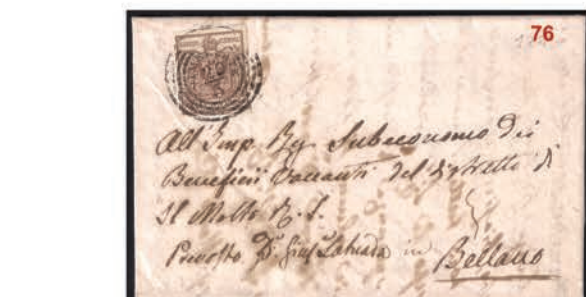 76
All'Imp. Rg. Subeconomo dei
Benefici Vacanti del distretto di
Il Molto R. S.
Prevosto Dn. in
Bellano